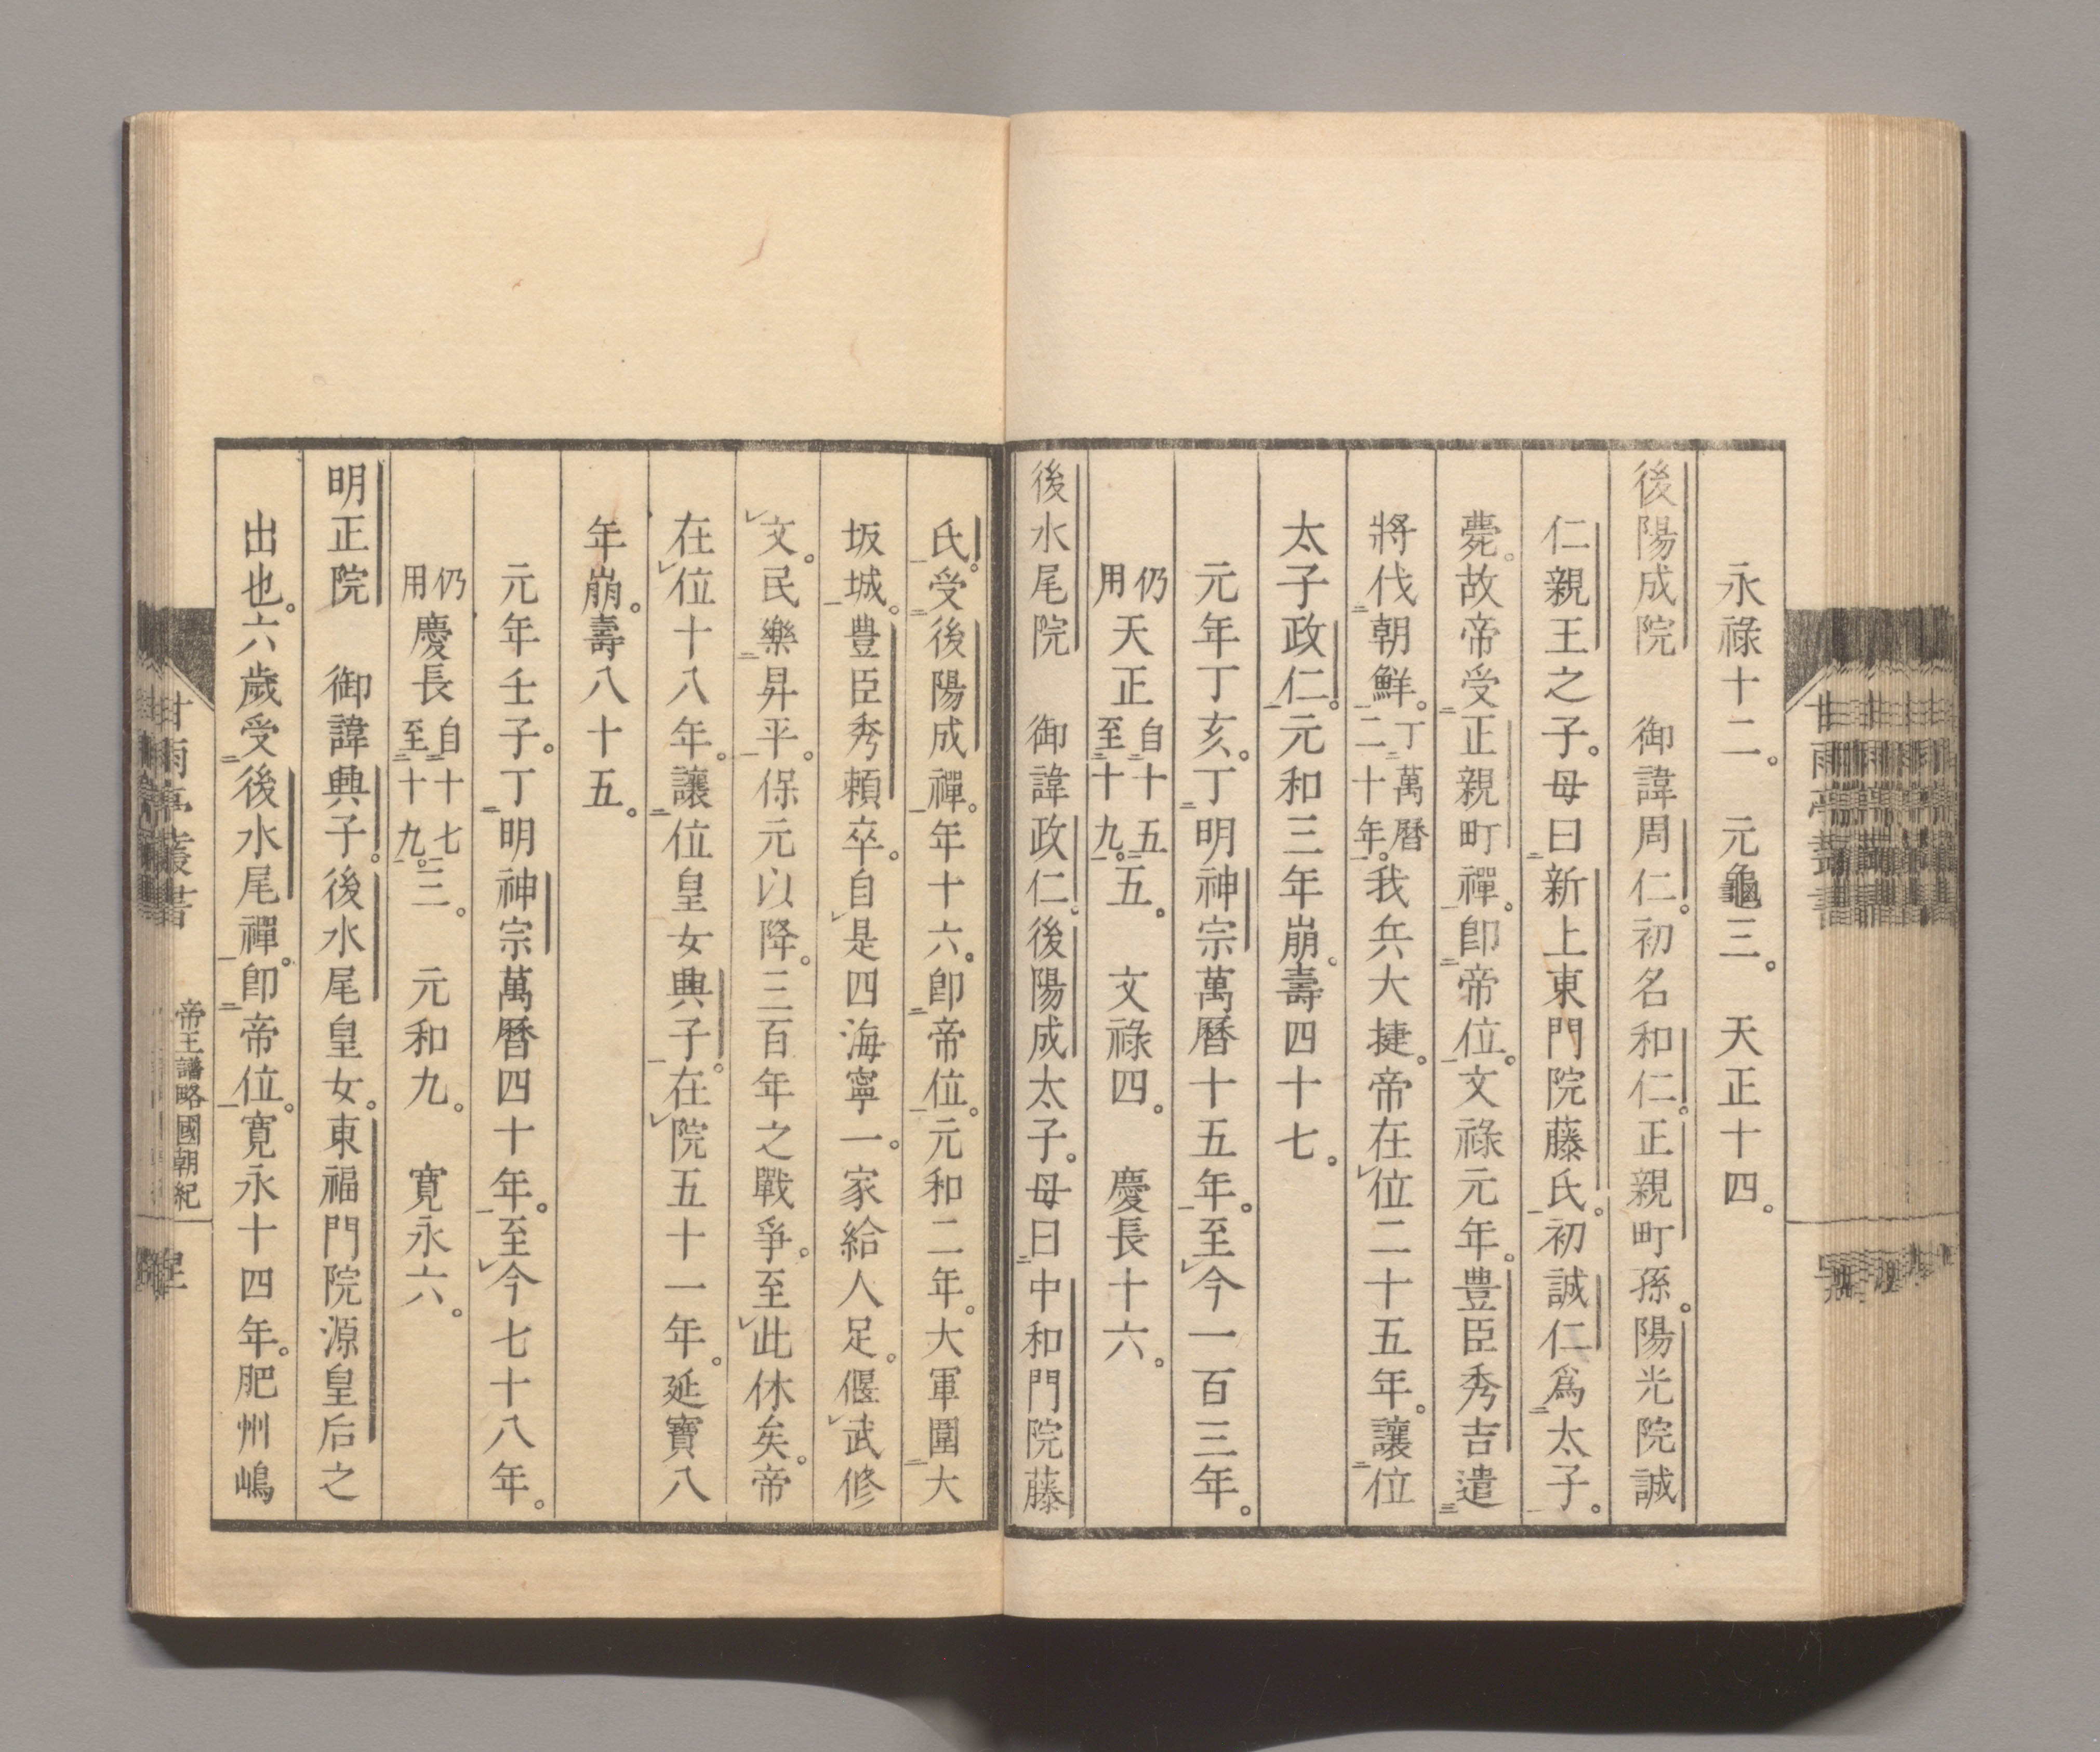 永祿十二。　元龜三。　天正十四。
後陽成院　御諱周仁。初名和仁。正親町孫。陽光院誠
仁親王之子。母曰新上東門院藤氏。初誠仁爲太子。
薨。故帝受正親町禪。卽帝位。文祿元年。豊臣秀吉遣
將伐朝鮮。丁萬曆二十年。我兵大捷。帝在位二十五年。讓位
太子政仁。元和三年崩。壽四十七。
元年丁亥。丁明神宗萬曆十五年。至今一百三年。
仍用天正自十五至十九。五。　文祿四。　慶長十六。
後水尾院　御諱政仁。後陽成太子。母曰中和門院藤
氏。受後陽成禪。年十六。卽帝位。元和二年。大軍圍大
坂城。豊臣秀賴卒。自是四海寧一。家給人足。偃武修
文。民樂昇平。保元以降。三百年之戰爭。至此休矣。帝
在位十八年。讓位皇女興子。在院五十一年。延寶八
年崩。壽八十五。
元年壬子。丁明神宗萬曆四十年。至今七十八年。
仍用慶長自十七至十九。三。　元和九。　寬永六。
明正院　御諱興子。後水尾皇女。東福門院源皇后之
出也。六歲受後水尾禪。卽帝位。寬永十四年。肥州嶋
甘雨亭叢書
帝王譜略國朝紀